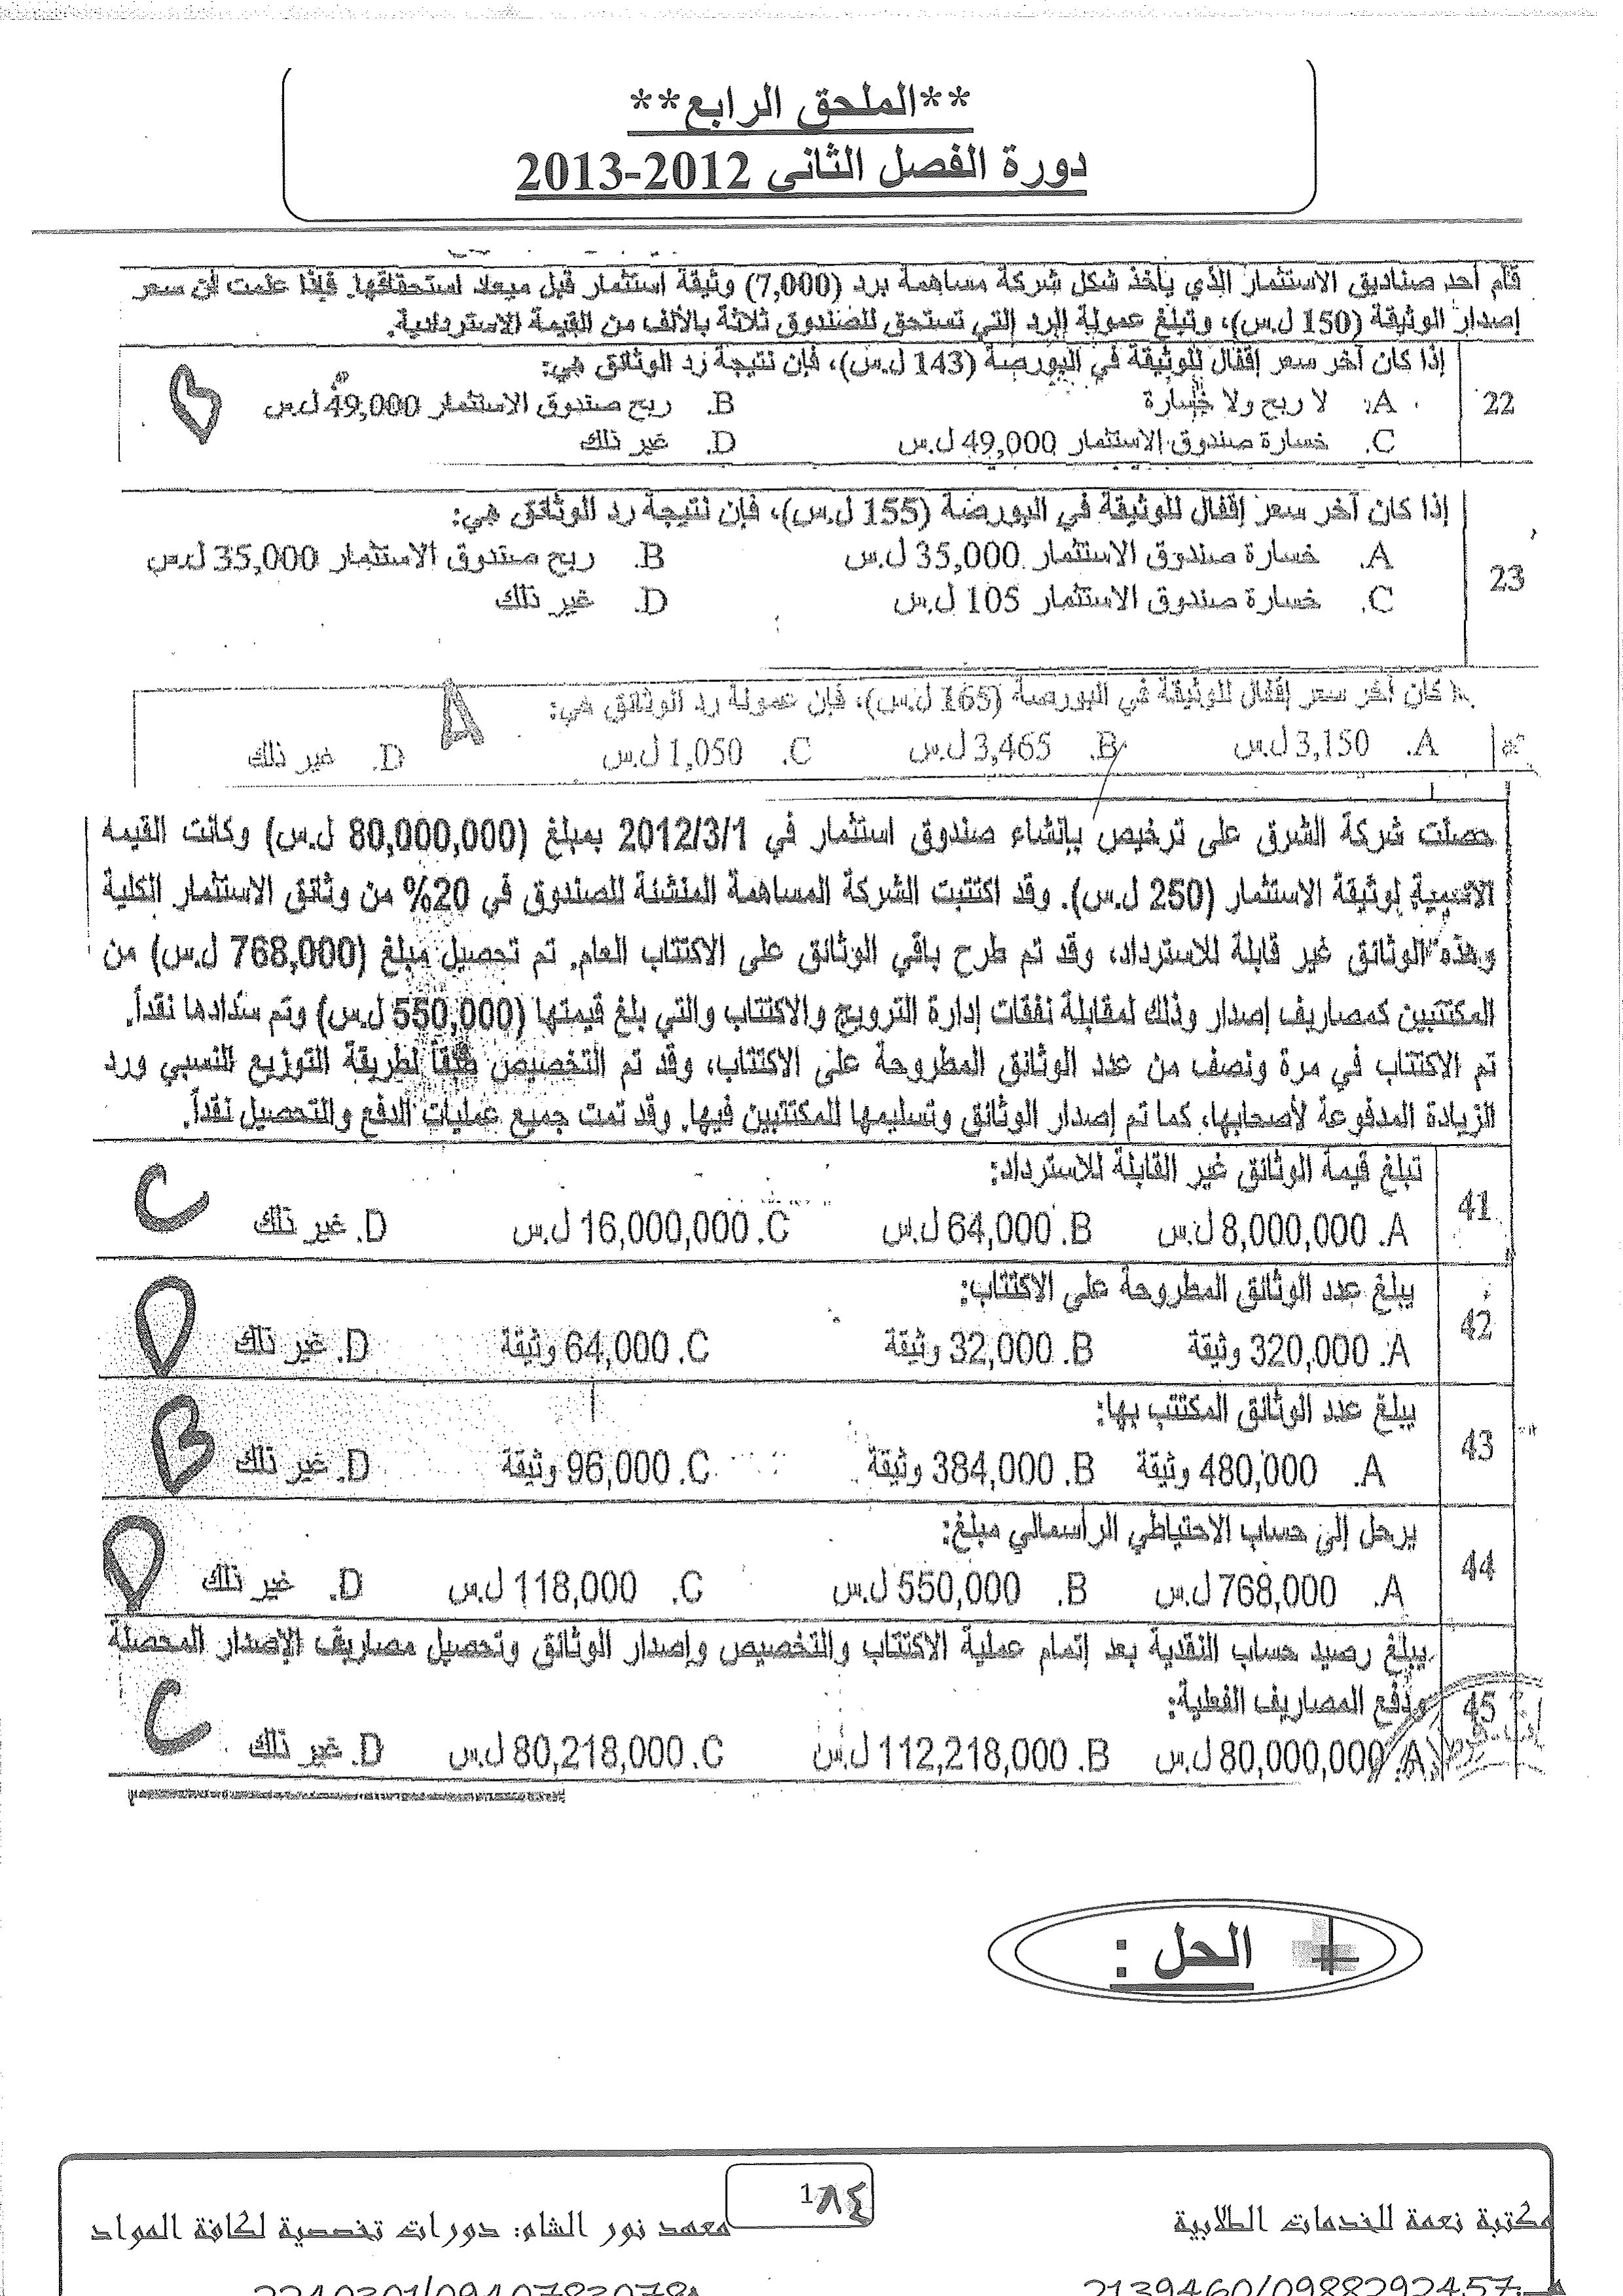 **الملحق الرابع**
دورة الفصل الثاني 2012-2013
قام أحد صناديق الاستثمار الذي يأخذ شكل شركة مساهمة برد (7,000) وثيقة استثمار قبل ميعاد استحقاقها. فإذا علمت أن سعر
إصدار الوثيقة (150 ل.س)، وتبلغ عمولة الرد التي تستحق للصندوق ثلاثة بالألف من القيمة الاستردادية.
22 إذا كان آخر سعر إقفال للوثيقة في البورصة (143 ل.س)، فإن نتيجة رد الوثائق هي:
A. لا ربح ولا خسارة B. ربح صندوق الاستثمار 49,000 ل.س
C. خسارة صندوق الاستثمار 49,000 ل.س D. غير ذلك
23 إذا كان آخر سعر إقفال للوثيقة في البورصة (155 ل.س)، فإن نتيجة رد الوثائق هي:
A. خسارة صندوق الاستثمار 35,000 ل.س B. ربح صندوق الاستثمار 35,000 ل.س
C. خسارة صندوق الاستثمار 105 ل.س D. غير ذلك
كان آخر سعر إقفال للوثيقة في البورصة (165 ل.س)، فإن عمولة رد الوثائق هي: A
A. 3,150 ل.س B. 3,465 ل.س C. 1,050 ل.س D. غير ذلك
حصلت شركة الشرق على ترخيص بإنشاء صندوق استثمار في 2012/3/1 بمبلغ (80,000,000 ل.س) وكانت القيمة
الاسمية لوثيقة الاستثمار (250 ل.س). وقد اكتتبت الشركة المساهمة المنشئة للصندوق في 20% من وثائق الاستثمار الكلية
وهذه الوثائق غير قابلة للاسترداد، وقد تم طرح باقي الوثائق على الاكتتاب العام. تم تحصيل مبلغ (768,000 ل.س) من
المكتتبين كمصاريف إصدار وذلك لمقابلة نفقات إدارة الترويج والاكتتاب والتي بلغ قيمتها (550,000 ل.س) وتم سدادها نقداً.
تم الاكتتاب في مرة ونصف من عدد الوثائق المطروحة على الاكتتاب، وقد تم التخصيص طبقاً لطريقة التوزيع النسبي ورد
الزيادة المدفوعة لأصحابها، كما تم إصدار الوثائق وتسليمها للمكتتبين فيها. وقد تمت جميع عمليات الدفع والتحصيل نقداً.
41 تبلغ قيمة الوثائق غير القابلة للاسترداد:
A. 8,000,000 ل.س B. 64,000 ل.س C. 16,000,000 ل.س D. غير ذلك C
42 يبلغ عدد الوثائق المطروحة على الاكتتاب:
A. 320,000 وثيقة B. 32,000 وثيقة C. 64,000 وثيقة D. غير ذلك D
43 يبلغ عدد الوثائق المكتتب بها:
A. 480,000 وثيقة B. 384,000 وثيقة C. 96,000 وثيقة D. غير ذلك B
44 يرحل إلى حساب الاحتياطي الرأسمالي مبلغ:
A. 768,000 ل.س B. 550,000 ل.س C. 118,000 ل.س D. غير ذلك D
يبلغ رصيد حساب النقدية بعد إتمام عملية الاكتتاب والتخصيص وإصدار الوثائق وتحصيل مصاريف الإصدار المحصلة
45 ودفع المصاريف الفعلية:
A. 80,000,000 ل.س B. 112,218,000 ل.س C. 80,218,000 ل.س D. غير ذلك C
الحل :
1٨٤
مكتبة نعمة للخدمات الطلابية
معهد نور الشام: دورات تخصصية لكافة المواد
2139460/0988292457